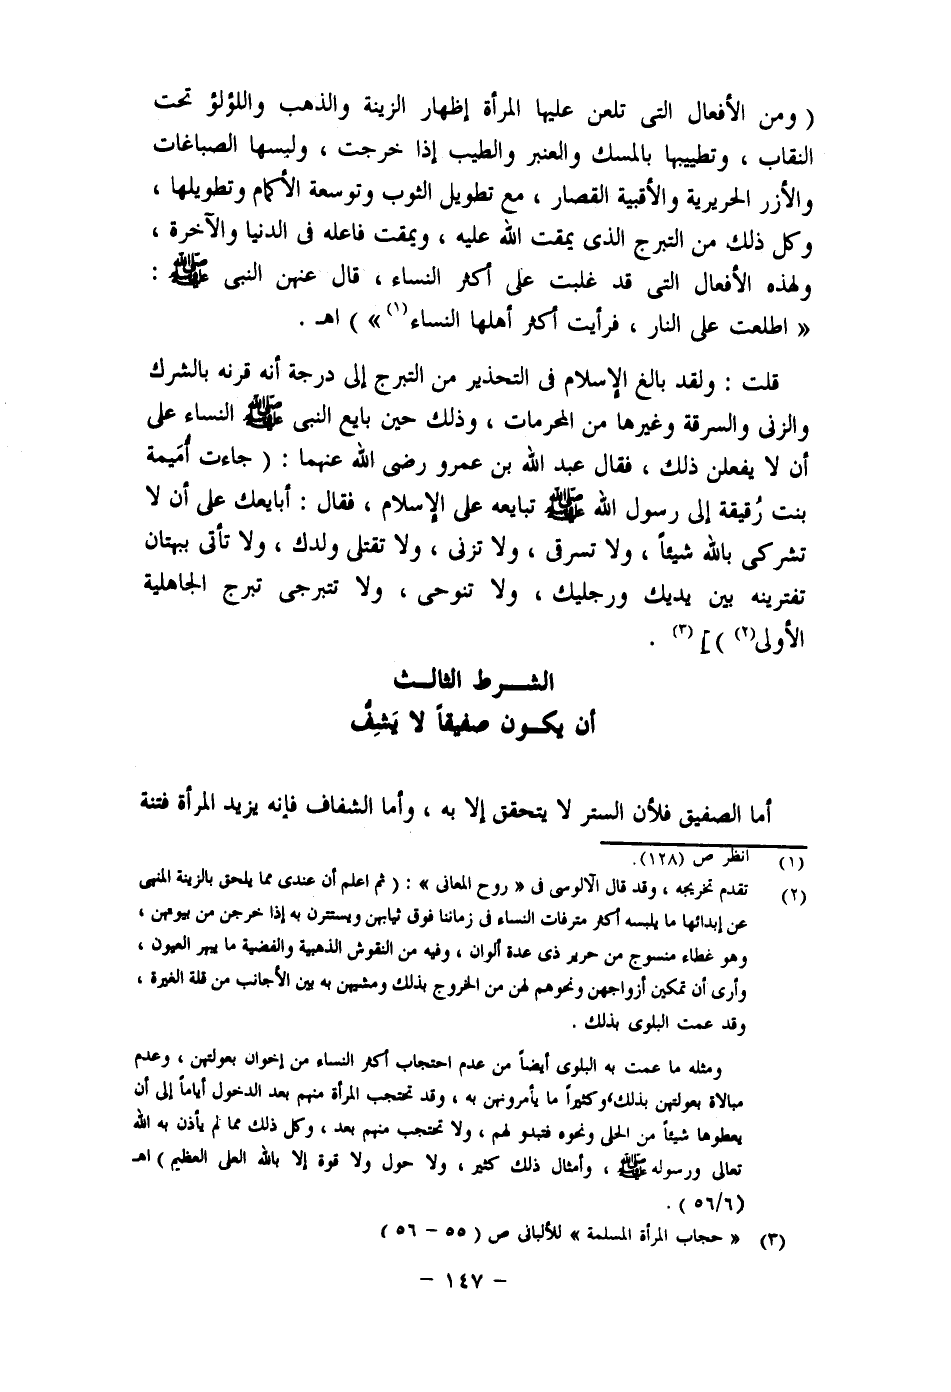 ( ومن الأفعال التى تلعن عليها المرأة إظهار الزينة والذهب واللؤلؤ تحت
النقاب ، وتطييبها بالمسك والعنبر والطيب إذا خرجت ، ولبسها الصباغات
والأزر الحريرية والأقبية القصار ، مع تطويل الثوب وتوسعة الأكمام وتطويلها ،
وكل ذلك من التبرج الذى يمقت الله عليه ، ويمقت فاعله فى الدنيا والآخرة ،
ولهذه الأفعال التى قد غلبت على أكثر النساء ، قال عنهن النبى ﷺ :
« اطلعت على النار ، فرأيت أكثر أهلها النساء(١) » ) اهـ .
قلت : ولقد بالغ الإسلام فى التحذير من التبرج إلى درجة أنه قرنه بالشرك
والزنى والسرقة وغيرها من المحرمات ، وذلك حين بايع النبى ﷺ النساء على
أن لا يفعلن ذلك ، فقال عبد الله بن عمرو رضى الله عنهما : ( جاءت أُمَيمة
بنت رُقيقة إلى رسول الله ﷺ تبايعه على الإسلام ، فقال : أبايعك على أن لا
تشركى بالله شيئاً ، ولا تسرقى ، ولا تزنى ، ولا تقتلى ولدك ، ولا تأتى ببهتان
تفترينه بين يديك ورجليك ، ولا تنوحى ، ولا تتبرجى تبرج الجاهلية
الأولى(٢) )](٣) .
الشـــرط الثالـــث
أن يكـــون صفيقاً لا يَشِفُّ
أما الصفيق فلأن الستر لا يتحقق إلا به ، وأما الشفاف فإنه يزيد المرأة فتنة
(١) انظر ص (١٢٨).
(٢) تقدم تخريجه ، وقد قال الآلوسى فى « روح المعانى » : ( ثم اعلم أن عندى مما يلحق بالزينة المنهى
عن إبدائها ما يلبسه أكثر مترفات النساء فى زماننا فوق ثيابهن ويستترن به إذا خرجن من بيوتهن ،
وهو غطاء منسوج من حرير ذى عدة ألوان ، وفيه من النقوش الذهبية والفضية ما يبهر العيون ،
وأرى أن تمكين أزواجهن ونحوهم لهن من الخروج بذلك ومشيهن به بين الأجانب من قلة الغيرة ،
وقد عمت البلوى بذلك .
ومثله ما عمت به البلوى أيضاً من عدم احتجاب أكثر النساء من إخوان بعولتهن ، وعدم
مبالاة بعولتهن بذلك، وكثيراً ما يأمرونهن به ، وقد تحتجب المرأة منهم بعد الدخول أياماً إلى أن
يعطوها شيئاً من الحلى ونحوه فتبدو لهم ، ولا تحتجب منهم بعد ، وكل ذلك مما لم يأذن به الله
تعالى ورسوله ﷺ ، وأمثال ذلك كثير ، ولا حول ولا قوة إلا بالله العلى العظيم ) اهـ
(٥٦/٦ ) .
(٣) « حجاب المرأة المسلمة » للألبانى ص ( ٥٥ – ٥٦ )
– ١٤٧ –